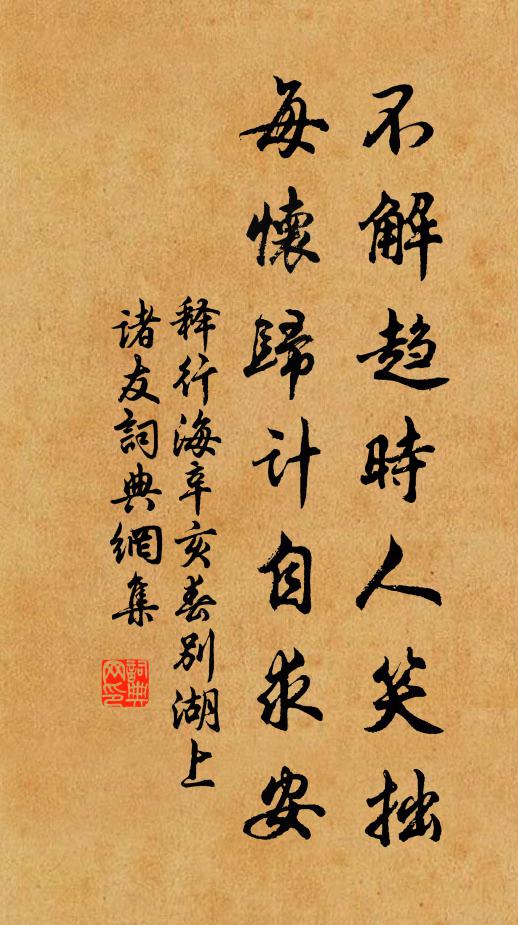 不解趨時人笑拙
每懷歸計自求安
释行海辛亥春別湖上
諸友詞典網集
詞典网印